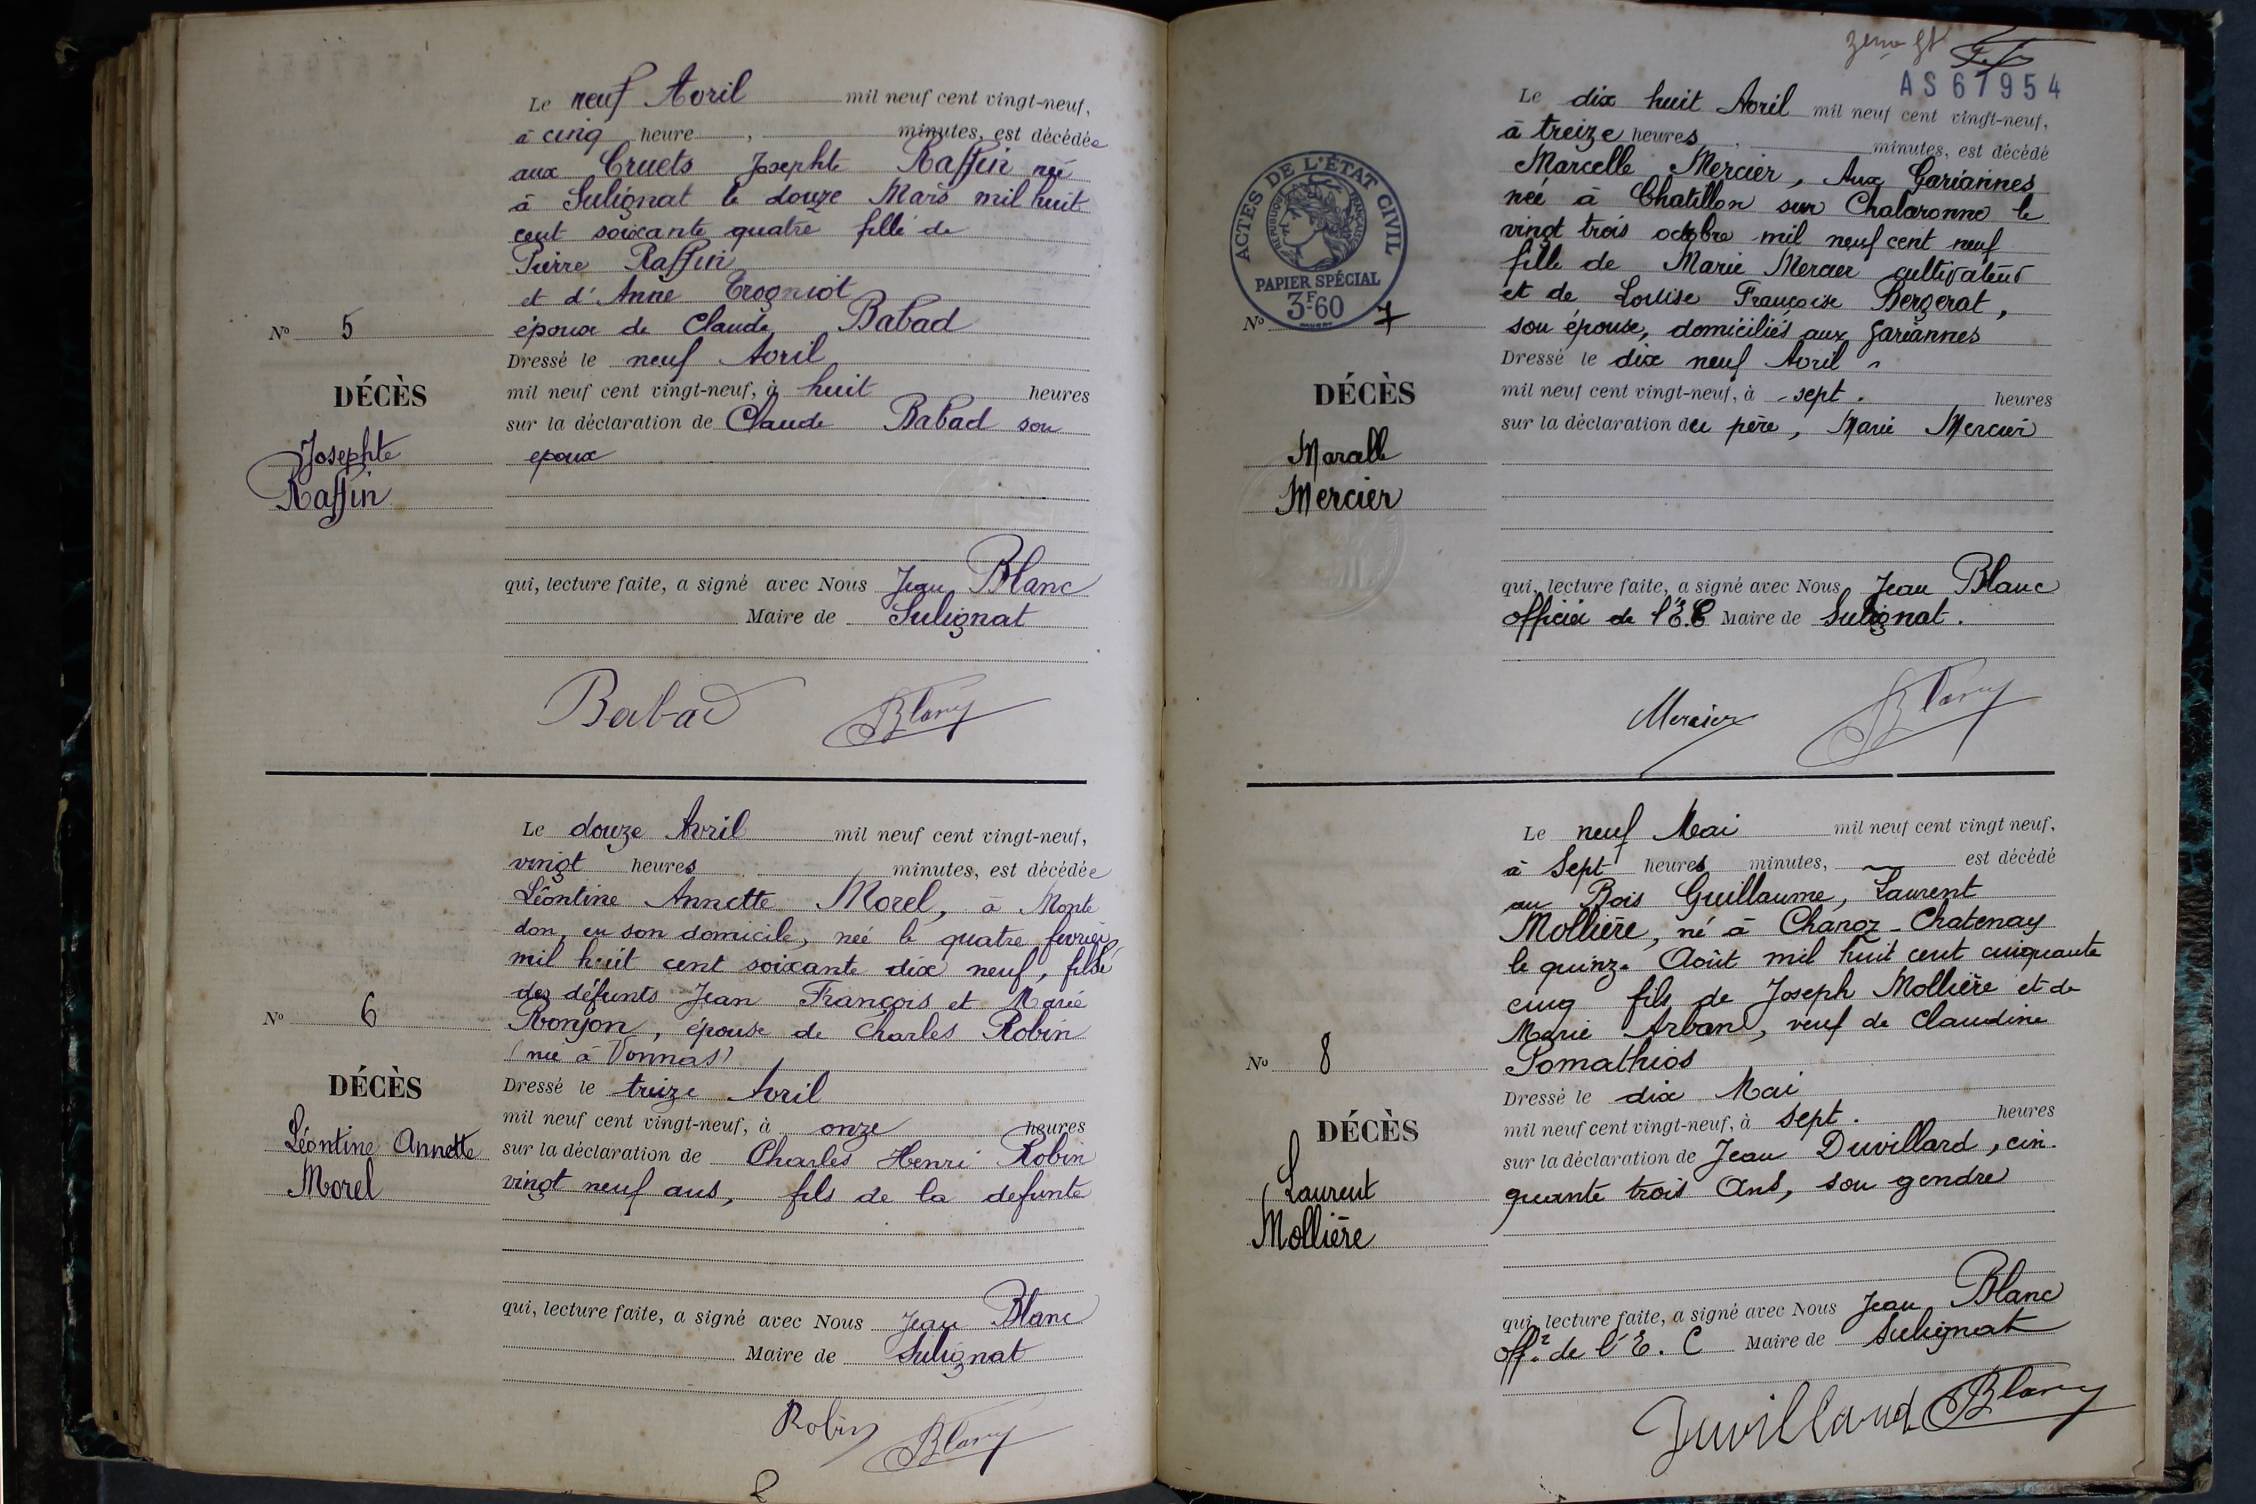 Le neuf Avril mil neuf cent vingt-neuf,
à cinq heure , minutes, est décédée
aux Cruets Josephte Raffin né
à Sulignat le douze Mars mil huit
cent soixante quatre fille de
Pierre Raffin
et d'Anne Trogniot
époux de Claude Babad
Nº 5
Dressé le neuf Avril
DÉCÈS
mil neuf cent vingt-neuf, à huit heures
sur la déclaration de Claude Babad son
Josephte
époux
Raffin
qui, lecture faite, a signé avec Nous Jean Blanc
Maire de Sulignat
Babad Blanc
Le douze Avril mil neuf cent vingt-neuf,
vingt heures minutes, est décédée
Léontine Annette Morel, à Monte
don, en son domicile, née le quatre fevrier
mil huit cent soixante dix neuf, fille
des défunts Jean François et Marie
Nº 6
Bonjon, épouse de Charles Robin
(née à Vonnas)
DÉCÈS
Dressé le treize Avril
mil neuf cent vingt-neuf, à onze heures
Léontine Annette
sur la déclaration de Charles Henri Robin
Morel
vingt neuf ans, fils de la defunte
qui, lecture faite, a signé avec Nous Jean Blanc
Maire de Sulignat
Robin Blanc
AS 67954
Le dix huit Avril mil neuf cent vingt-neuf,
à treize heures, minutes, est décédé
Marcelle Mercier, Aux Gariannes
née à Chatillon sur Chalaronne le
vingt trois octobre mil neuf cent neuf
fille de Marie Mercier cultivateur
et de Louise Françoise Bergerat,
son épouse, domiciliés aux Gariannes
ACTES DE L'ÉTAT CIVIL
RÉPUBLIQUE FRANÇAISE
PAPIER SPÉCIAL
3F-60
Nº 7
Dressé le dix neuf Avril
DÉCÈS
mil neuf cent vingt-neuf, à sept. heures
sur la déclaration du père, Marie Mercier
Marcelle
Mercier
qui, lecture faite, a signé avec Nous Jean Blanc
officier de l'E.C Maire de Sulignat.
Mercier Blanc
Le neuf Mai mil neuf cent vingt neuf,
à Sept heures minutes, est décédé
au Bois Guillaume, Laurent
Mollière, né à Chanoz-Chatenay
le quinze Août mil huit cent cinquante
cinq fils de Joseph Mollière et de
Marie Arban, veuf de Claudine
Pomathios
Nº 8
Dressé le dix Mai
DÉCÈS
mil neuf cent vingt-neuf, à sept. heures
sur la déclaration de Jean Duvillard, cin.
Laurent
quante trois Ans, son gendre
Mollière
qui, lecture faite, a signé avec Nous Jean Blanc
offr. de l'E. C Maire de Sulignat
Duvillard Blanc